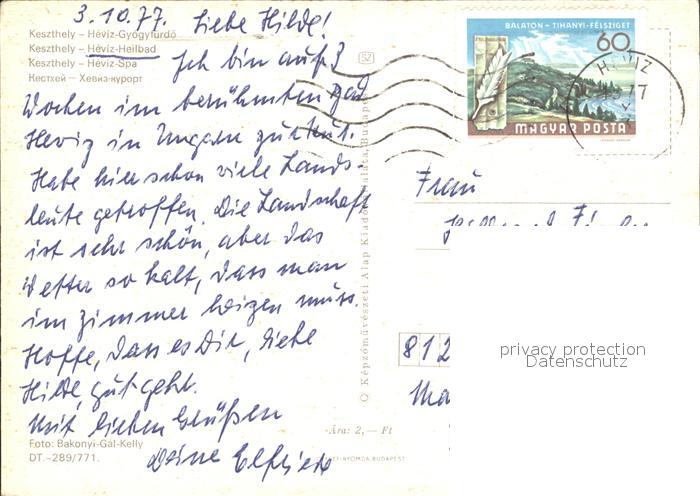 3.10.77. Liebe Hilde!
Keszthely – Hévíz-Gyógyfürdő
Keszthely – Hévíz-Heilbad
Keszthely – Hévíz-Spa
Кестхей – Хевиз-курорт
Ich bin auf 3
Wochen im berühmten Bad
Heviz in Ungarn zur Kur.
Habe hier schon viele Lands-
leute getroffen. Die Landschaft
ist sehr schön, aber das
Wetter so kalt, dass man
im Zimmer heizen muss.
Hoffe, dass es Dir, liebe
Hilde, gut geht.
Mit lieben Grüßen
Deine Elfriede
Foto: Bakonyi-Gál-Kelly
DT.–289/771.
© Képzőművészeti Alap Kiadóvállalata, Budapest
Ára: 2,— Ft
BUDAPEST
BALATON – TIHANYI-FÉLSZIGET
60
MAGYAR POSTA
HÉVIZ
77
Frau
812
Ma
privacy protection
Datenschutz